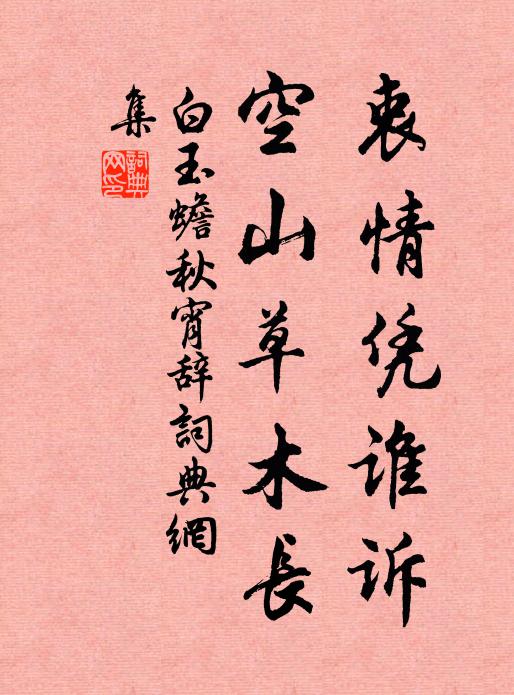 衷情凭谁诉
空山草木長
白玉蟾秋宵辞詞典網
集
詞典网印